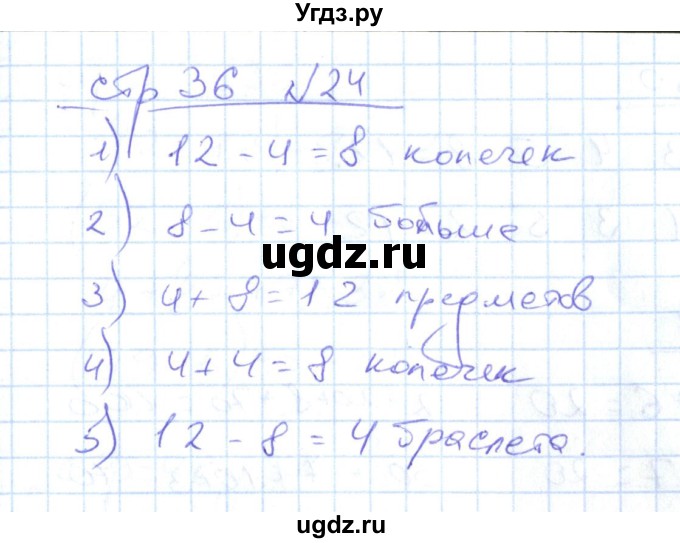 Угдз.ру
стр 36 №24
1) 12 - 4 = 8 копечек
2) 8 - 4 = 4 больше
gdz.ru
ugdz.ru
3) 4 + 8 = 12 предметов
4) 4 + 4 = 8 копечек
5) 12 - 8 = 4 браслета.
ugdz.ru